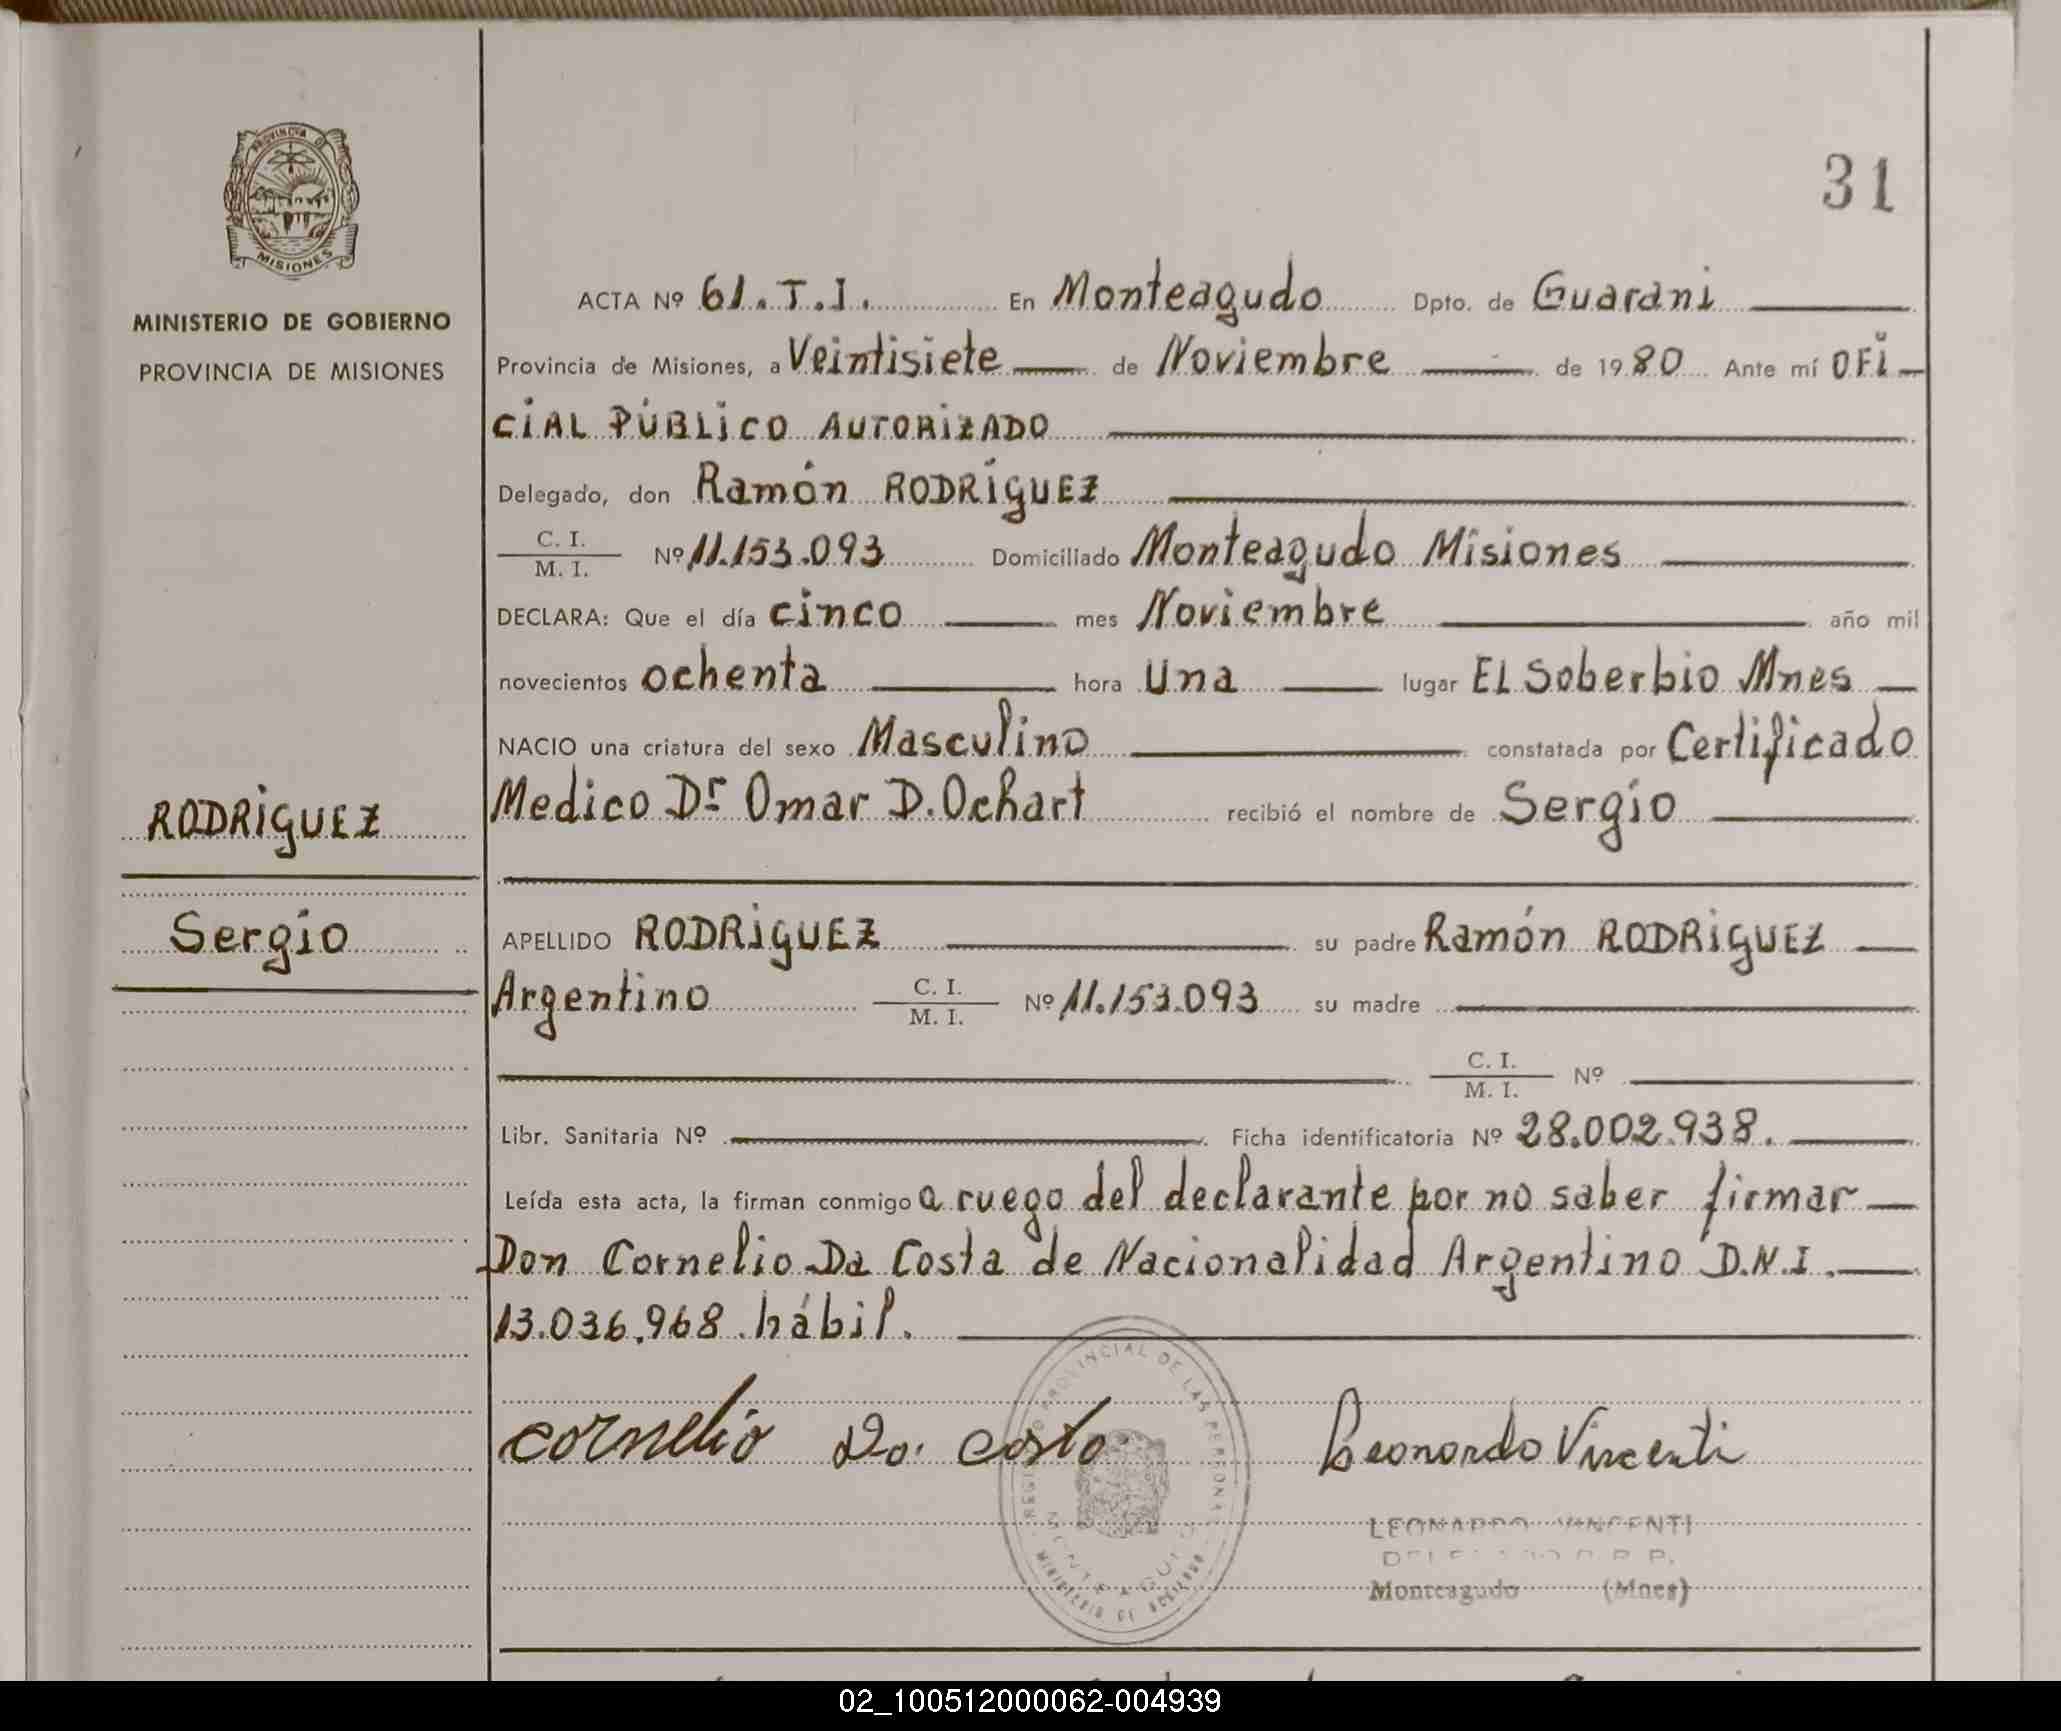 31
PROVINCIA D
MISIONES
MINISTERIO DE GOBIERNO
PROVINCIA DE MISIONES
ACTA Nº 61.T.I. En Monteagudo Dpto. de Guarani
Provincia de Misiones, a Veintisiete de Noviembre de 1980 Ante mí OFI
CIAL PÚBLICO AUTORIZADO
Delegado, don Ramón RODRIGUEZ
C. I.
M. I. Nº 11.153.093 Domiciliado Monteagudo Misiones
DECLARA: Que el día cinco mes Noviembre año mil
novecientos ochenta hora una lugar EL Soberbio Mnes
NACIO una criatura del sexo Masculino constatada por Certificado
Medico Dr Omar D. Ochart recibió el nombre de Sergio
RODRIGUEZ
Sergio
APELLIDO RODRIGUEZ su padre Ramón RODRIGUEZ
Argentino C. I.
M. I. Nº 11.153.093 su madre
C. I.
M. I. Nº
Libr. Sanitaria Nº Ficha identificatoria Nº 28.002.938.
Leída esta acta, la firman conmigo a ruego del declarante por no saber firmar
Don Cornelio Da Costa de Nacionalidad Argentino D.N.I.
13.036.968 hábil.
cornelio Da costa Leonardo Vincenti
REGISTRO PROVINCIAL DE LAS PERSONAS
MONTEAGUDO
MINISTERIO DE GOBIERNO
LEONARDO VINCENTI
Monteagudo (Mnes)
02_100512000062-004939